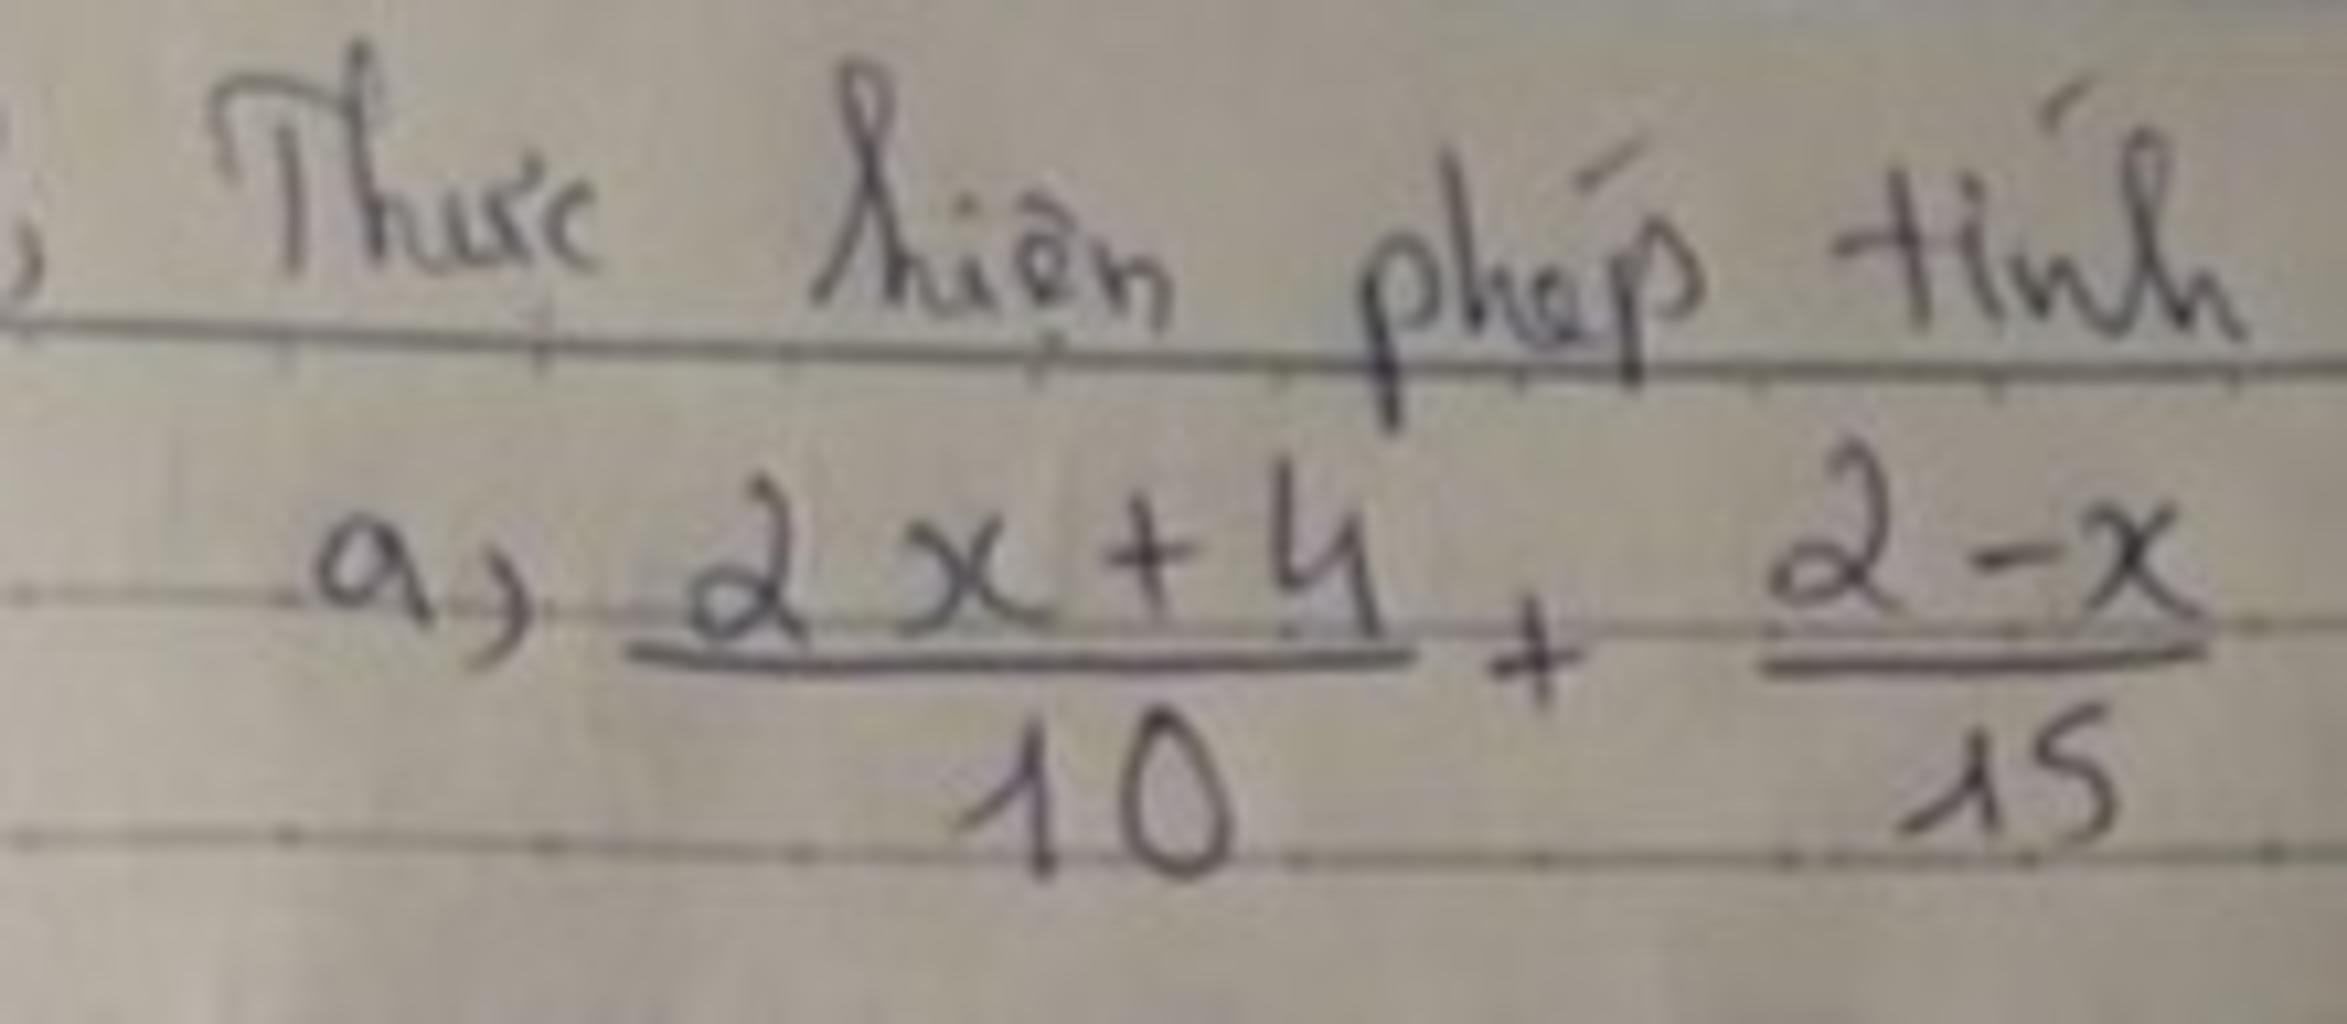 , Thực hiện phép tính
a, \frac{2x+4}{10} + \frac{2-x}{15}